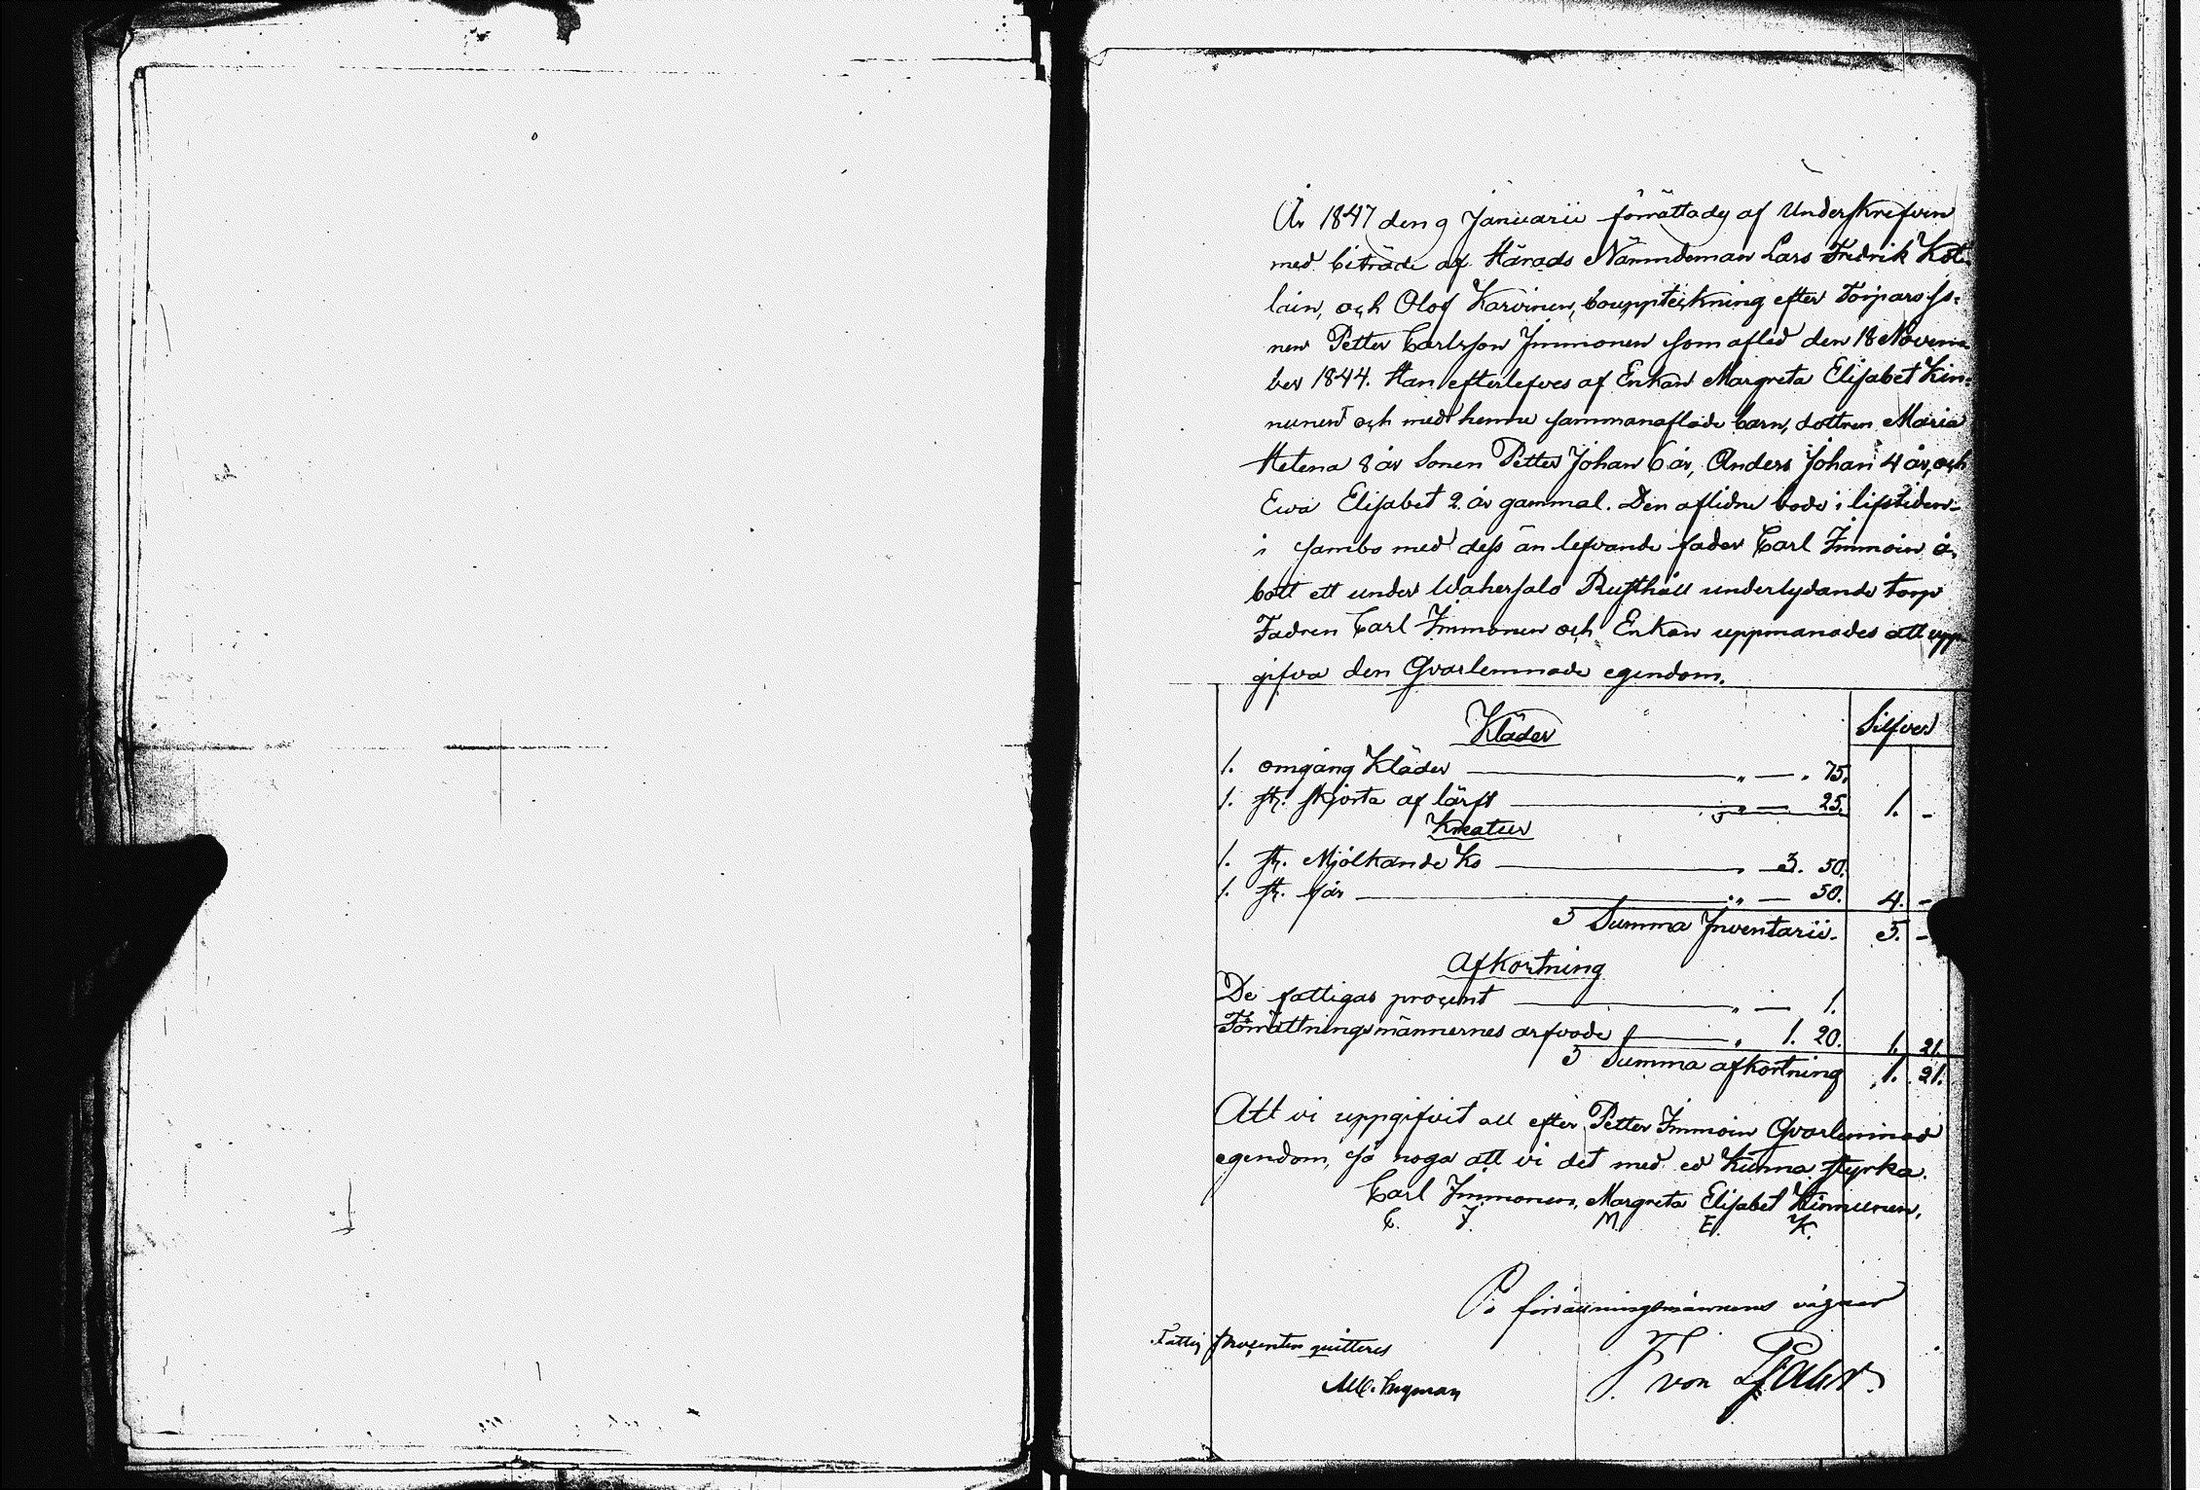 År 1847 den 9 Januarii förrättades af Underskrifven
med biträde af Härads Nämndeman Lars Fredrik Koti-
lain, och Olof Karvinen, bouppteckning efter Torparesso-
nen Petter Carlsson Immonen som afled den 18 Novem-
ber 1844. Han efterlefves af Enkan Margreta Elisabet Kin-
nunen och med henne sammanaflade barn, dottren Maria
Helena 8 år Sonen Petter Johan 6 år, Anders Johan 4 år, och
Ewa Elisabet 2 år gammal. Den aflidne bode i lifstiden
i sambo med dess än lefvande fader Carl Immoin å,
bott ett under Wahersalo Rusthåll underlydande torp
Fadren Carl Immonen och Enkan uppmanades att upp-
gifva den Qvarlemnade egendom.
Kläder Silfver
1. omgång Kläder — „ — „ 75.
1. st. skjorta af lärft — „ — 25. 1. -
Kreatur
1. st. Mjölkande Ko — „ — 3. 50.
1. st. får — „ — 50. 4. -
Summa Inventarii. 5. -
Afkortning
De fattigas procent — „ — 1.
Förrättningsmännernes arfvode — „ 1. 20. 1. 21.
Summa afkortning 1. 21.
Att vi uppgifvit all efter Petter Immoin Qvarlemnad
egendom, så noga att vi det med ed Kunna styrka.
Carl Immonen, Margreta Elisabet Kinnunen,
C. I. M. E. K.
På förrättningsmännens vägnar
Fattig procenten quitteres
F von
Ingman